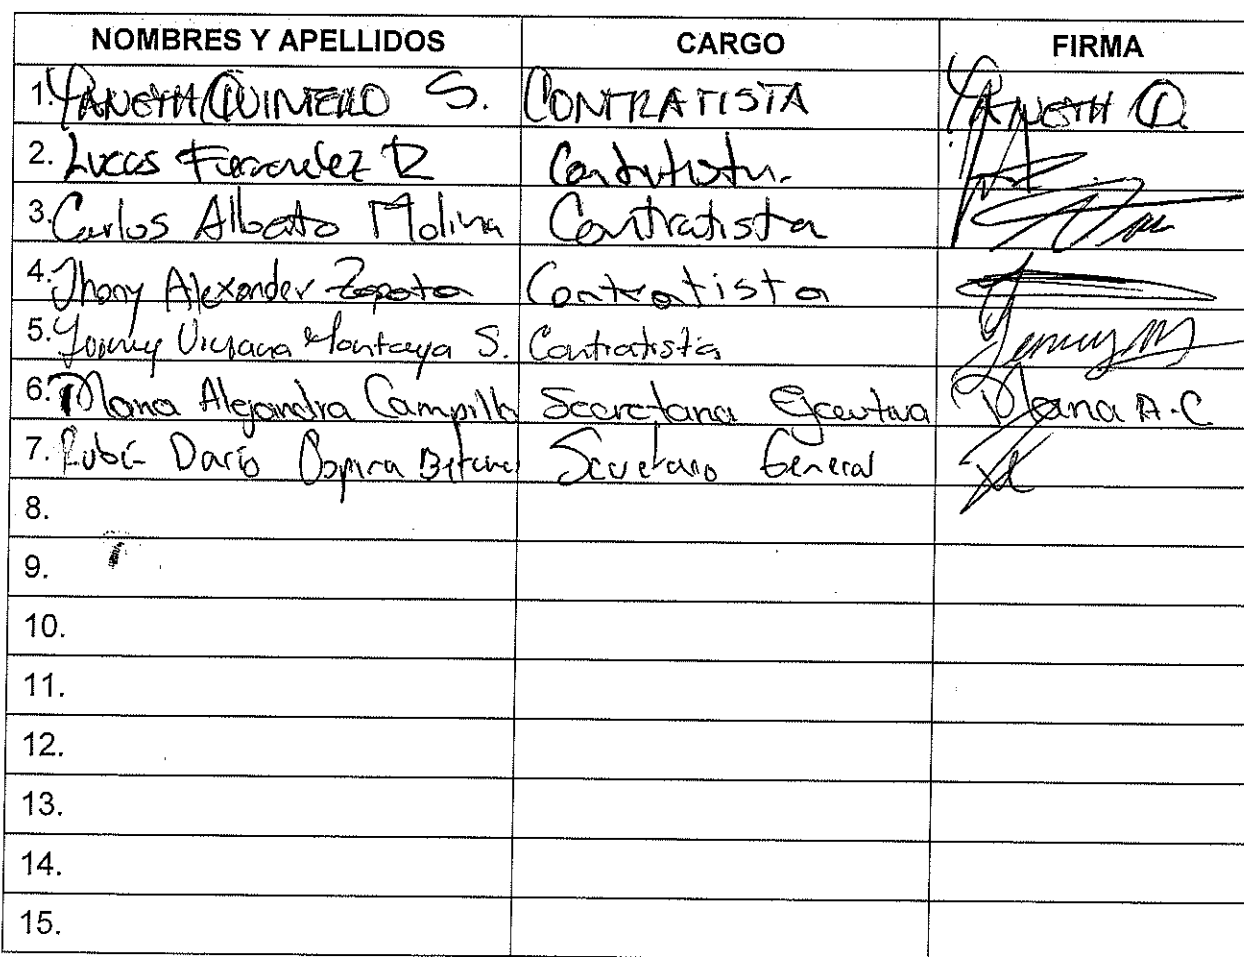 NOMBRES Y APELLIDOS CARGO FIRMA
1. YANETH QUINTERO S. CONTRATISTA YANETH Q.
2. Lucas Fernandez R Contratista
3. Carlos Alberto Molina Contratista
4. Jhony Alexander Zapata Contratista
5. Yenny Viviana Montoya S. Contratista Yenny M
6. Maria Alejandra Campillo Secretaria Ejecutiva Maria A.C
7. Rubé Darío Ospina Secretario General
8.
9.
10.
11.
12.
13.
14.
15.